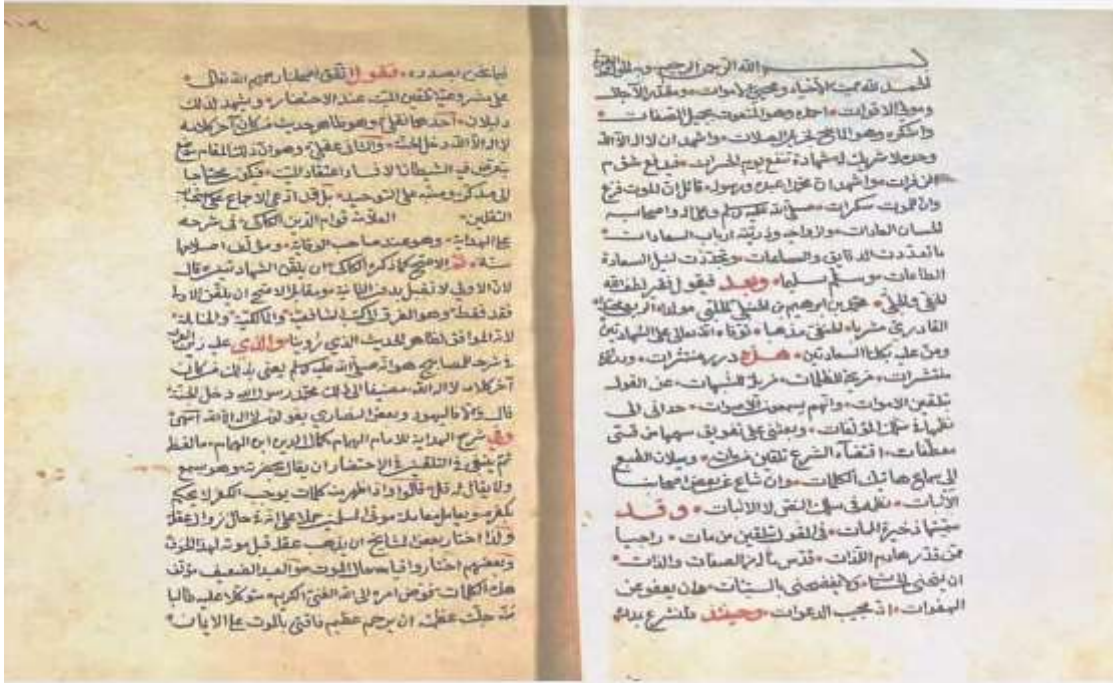 بسم الله الرحمن الرحيم وبه
الحمد لله مميت الأحياء ومحيي الأموات ومقدر الآجال
وموفي الأقوات احمده وهو المنعوت بجميل الصفات
واشكره وهو المانح لجزيل الصلات واشهد ان لا اله الا الله
وحده لا شريك له شهادة تنفع يوم الحسرات
واشهد ان محمدا عبده ورسوله قائل ان للموت فزع
وان للموت سكرات صلى الله عليه وسلم وعلى اله واصحابه
الحسان العادات وازواجه وذريته ارباب السعادات
ما تعددت الدقايق والساعات وتجددت لنيل السعادة
الطاعات وسلم تسليما وبعد فيقول فقير لطف الله
الخفي والجلي محمد بن ابراهيم بن الحنبلي الحلبي
القادري مشربا الحنفي مذهبا توفاه الله تعالى على الشهادتين
ومن عليه بكلتا السعادتين هذه درر منتثرات
منتشرات مزيحة للظلمات مزيلة للشبهات عن القول
بتلقين الاموات وانهم يسمعون الاصوات حداني الى
نظمها في سلك المؤلفات وبعثني على تفويق سهمها من قسي
معطفات اقتضاء الشرع تلقين من مات وميلان الطبع
الى سماع هاتيك الكلمات وان شاع عن بعض اصحابنا
الاثبات نظمه في سلك النفي لا الاثبات وقد
سميتها ذخيرة الممات في القول بتلقين من مات راجيا
ممن قدر هادم اللذات قدس بالصفات والذات
ان يمنحني ولا يفضحني بالسيئات وان يعفو عن
الهفوات انه مجيب الدعوات وحينئذ فلنشرع بذلك
فيما نحن بصدده فنقول اتفق اصحابنا رحمهم الله تعالى
على مشروعية تلقين الميت عند الاحتضار ويشهد لذلك
دليلان احدهما نقلي وهو ظاهر حديث من كان آخر كلامه
لا اله الا الله دخل الجنة والثاني عقلي وهو ان ذلك المقام
يتعرض فيه الشيطان لافساد اعتقاد الميت فيكون محتاجا
الى مذكر ومنبه على التوحيد بل قد ادعى الاجماع على هذا
التلقين العلامة قوام الدين الكاكي في شرحه
على الهداية وهو عند صاحب الوقاية ومؤلف اصلاحها
سنة ثم الاصح كما ذكره الكاكي ان يلقن الشهادتين قال
لان الاولى لا تقبل بدون الثانية ومقابل الاصح ان يلقن الاولى
فقد فقط وهو المفرق في كتب الشافعية والمالكية والحنابلة
لانه الموافق لظاهر الحديث الذي روينا والذي
في شرح المصابيح هو انه صلى الله عليه وسلم يعني بذلك من كان
آخر كلامه لا اله الا الله مضيفا الى ذلك محمد رسول الله دخل الجنة
قال لان اليهود وبعض النصارى يقولون لا اله الا الله انتهى
وفي شرح الهداية للامام الهمام كمال الدين ابن الهمام ما لفظه
ثم ينبغي في التلقين في الاحتضار ان يقال بحضرته وهو يسمع
ولا يقال له قل قالوا واذا ظهر منه كلمات توجب الكفر لا يحكم
بكفره ويعامل معاملة موتى المسلمين حملا على انه في حال زوال عقله
ولذا اختار بعض المشايخ ان يذهب عقله قبل موته لهذا الخوف
وبعضهم اختاروا قيامه حال الموت والعبد الضعيف مؤلف
هذه الكلمات فوض امره الى الله الغني الكريم متوكلا عليه طالبا
منه جلت عظمته ان يرحم عظيم فاقتي بالموت على الايمان